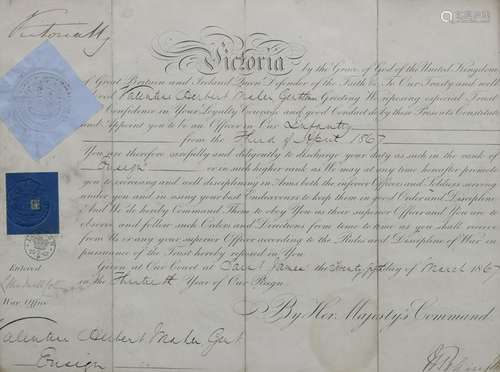 Victoria R
Victoria by the Grace of God of the United Kingdom
of Great Britain and Ireland Queen Defender of the Faith &c To Our Trusty and well
Valentine Herbert Greeting We reposing especial Trust
and Confidence in Your Loyalty Courage and good Conduct do by these Presents Constitute
and Appoint you to be an Officer in Our Infantry
from the Third of April 1867
You are therefore carefully and diligently to discharge your duty as such in the rank of
Ensign or in such higher rank as We may at any time hereafter promote
you to exercising and well disciplining in Arms both the inferior Officers and Soldiers serving
under you and in using your best Endeavours to keep them in good Order and Discipline
And We do hereby Command Them to Obey You as their superior Officer and You are to
observe and follow such Orders and Directions from time to time as you shall receive
from Us or any your superior Officer according to the Rules and Discipline of War in
pursuance of the Trust hereby reposed in You
Given at Our Court at Saint James's the day of March 1867
in the Thirtieth Year of Our Reign
Entered
War Office
By Her Majesty's Command.
Valentine Herbert
Ensign